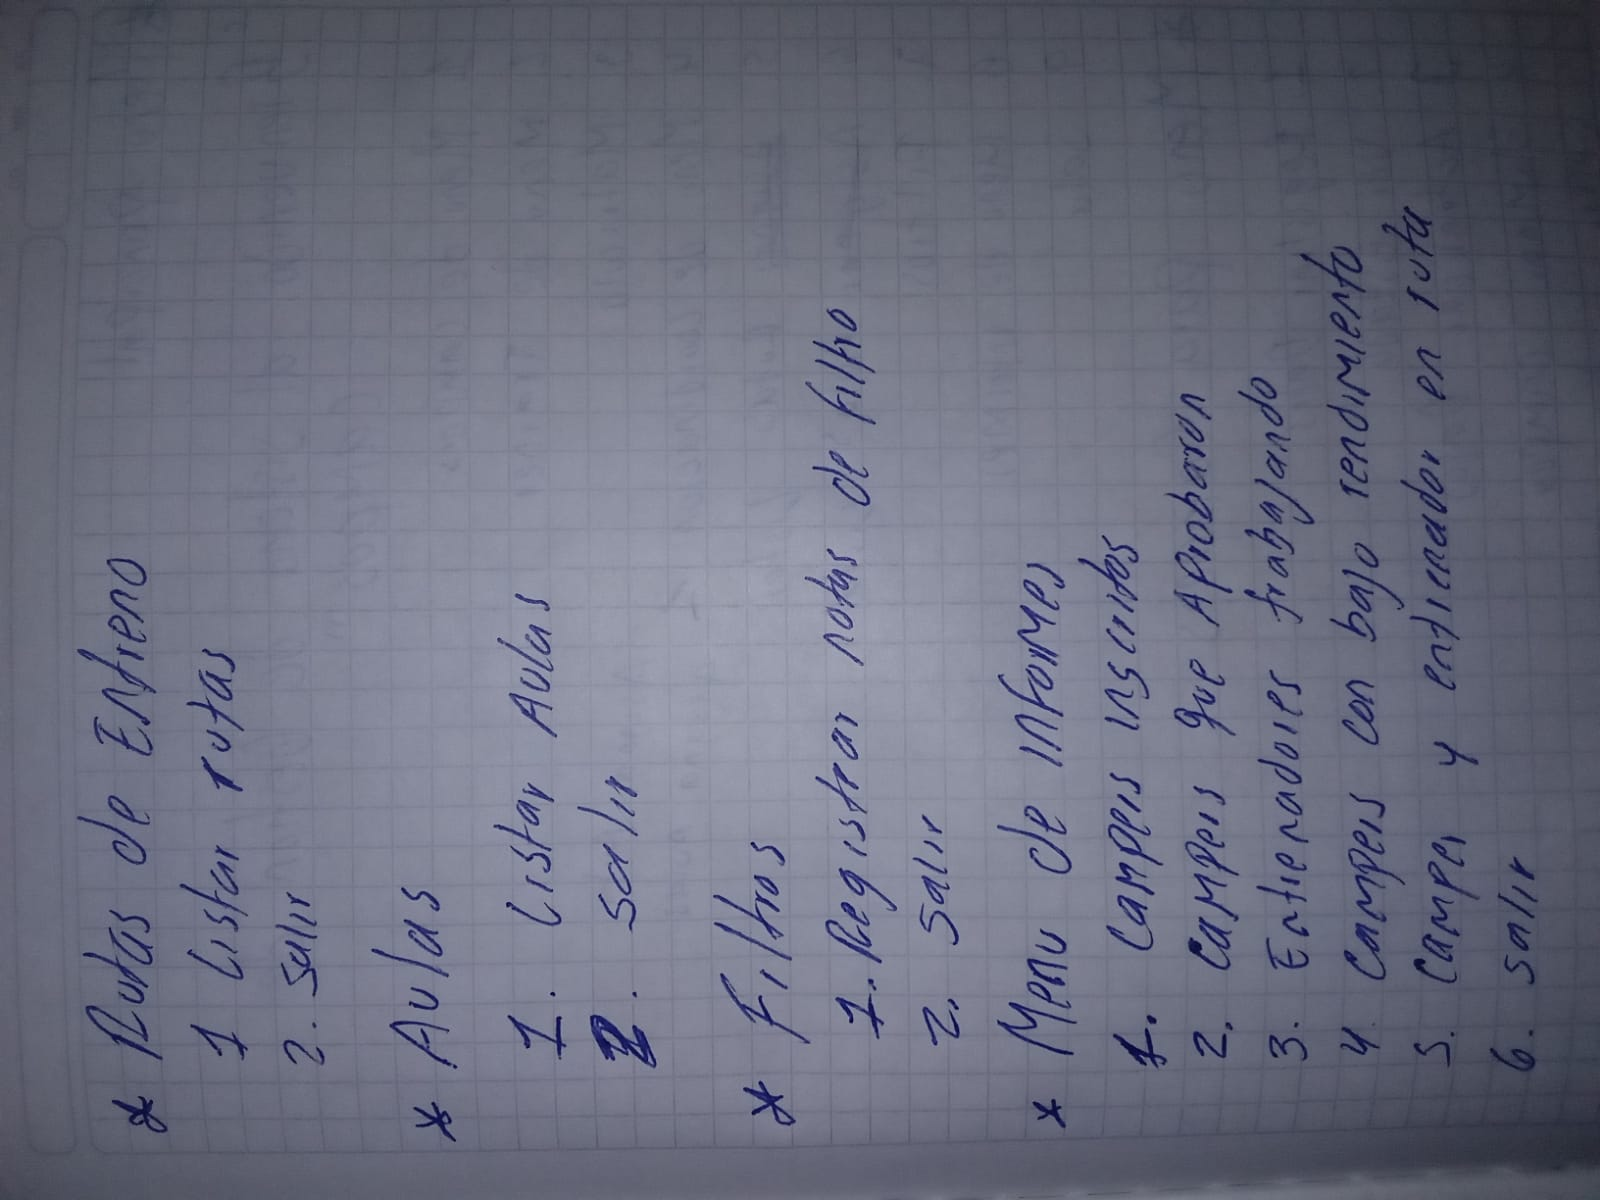 * Rutas de Entreno
1 Listar rutas
2. Salir
* Aulas
1. Listar Aulas
2. Salir
* Filtros
1. Registrar notas de filtro
2. Salir
* Menu de informes
1. Campers inscritos
2. Campers que Aprobaron
3. Entrenadores trabajando
4. Campers con bajo rendimiento
5. Camper y entrenador en ruta
6. Salir